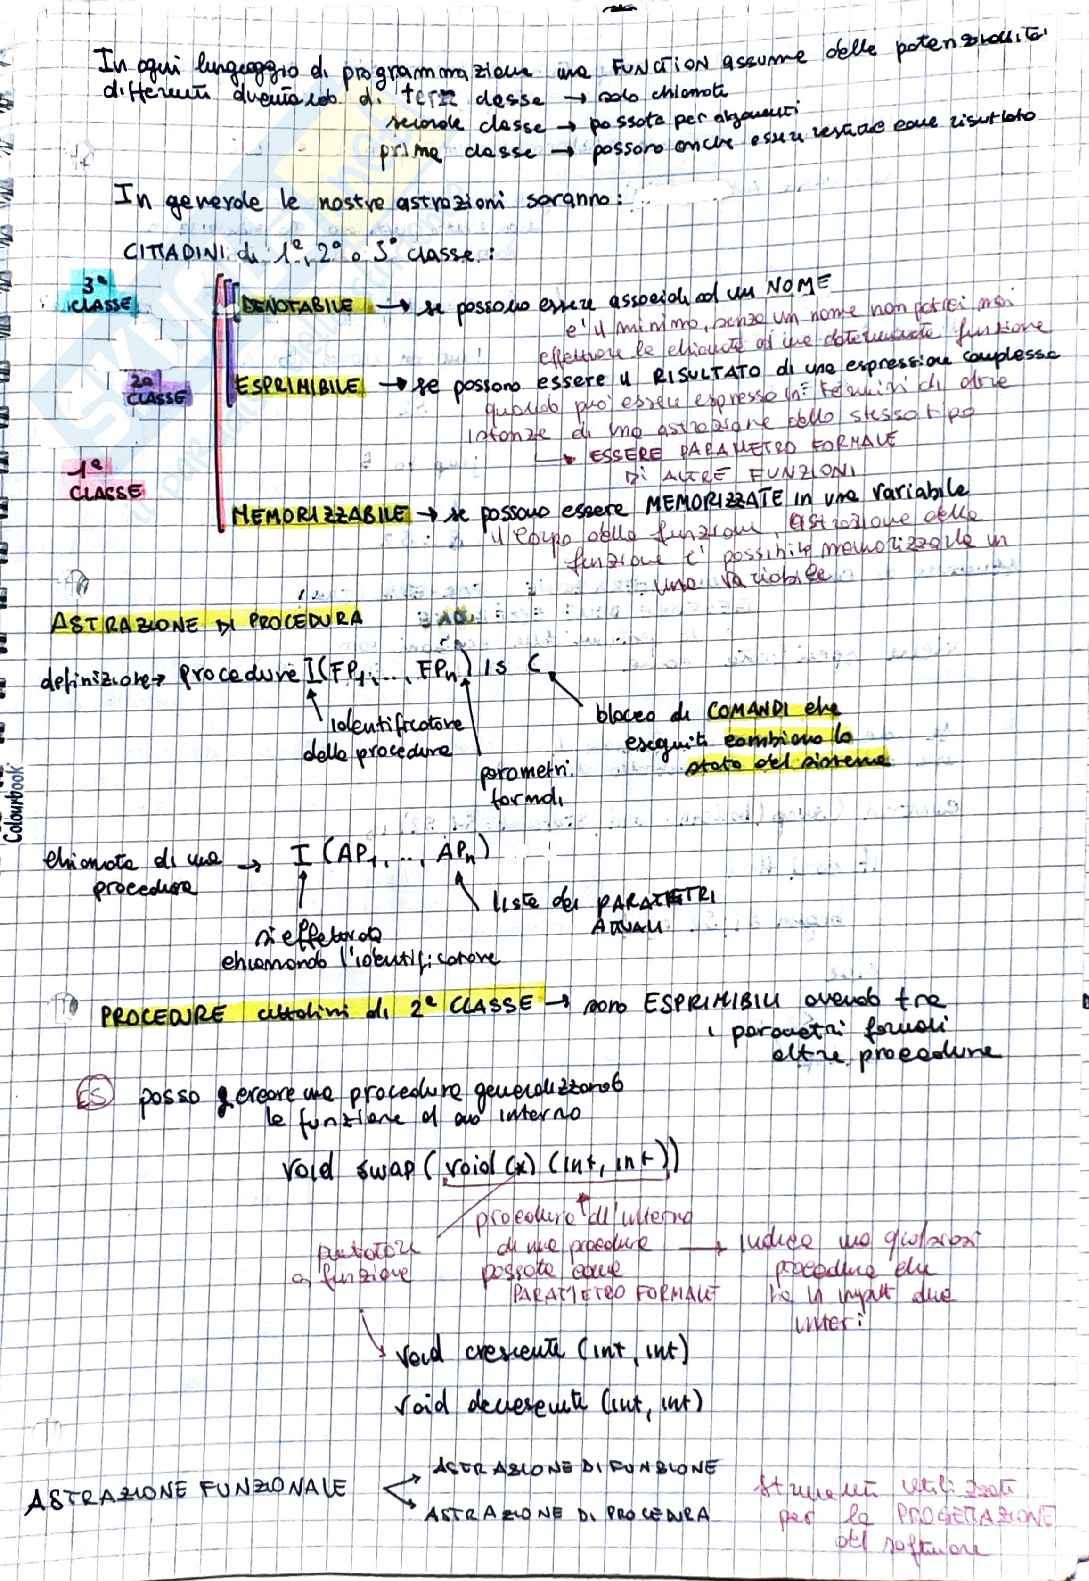 In ogni linguaggio di programmazione una FUNCTION assume delle potenzialità
differenti diventando di terza classe → solo chiamate
seconda classe → passate per argomenti
prima classe → possono anche essere restituite come risultato
In generale le nostre astrazioni saranno:
CITTADINI di 1ª, 2ª o 3ª classe:
3ª CLASSE
DENOTABILE → se possono essere associati ad un NOME
è il minimo, senza un nome non potrei mai
effettuare la chiamata di una determinata funzione
2ª CLASSE
ESPRIMIBILE → se possono essere il RISULTATO di una espressione complessa
quando può essere espresso in termini di altre
istanze di una astrazione dello stesso tipo
→ ESSERE PARAMETRO FORMALE
DI ALTRE FUNZIONI
1ª CLASSE
MEMORIZZABILE → se possono essere MEMORIZZATE in una variabile
il corpo della funzione, astrazione della
funzione è possibile memorizzarla in
una variabile
ASTRAZIONE DI PROCEDURA
definizione → procedure I(FP1, ..., FPn) is C
identificatore
della procedura
parametri
formali
blocco di COMANDI che
eseguiti cambiano lo
stato del sistema
chiamata di una → I (AP1, .., APn)
procedura
lista dei PARAMETRI
ATTUALI
si effettua
chiamando l'identificatore
PROCEDURE cittadini di 2ª CLASSE → sono ESPRIMIBILI avendo tra
i parametri formali
altre procedure
ES posso creare una procedura generalizzando
la funzione al suo interno
void swap (void (*) (int, int))
puntatore
a funzione
procedura all'interno
di una procedura
passata come
PARAMETRO FORMALE
→ indica una qualsiasi
procedura che
ha in input due
interi
void crescente (int, int)
void decrescente (int, int)
ASTRAZIONE FUNZIONALE
ASTRAZIONE DI FUNZIONE
ASTRAZIONE DI PROCEDURA
strumenti utilizzati
per la PROGETTAZIONE
del software
Colourbook